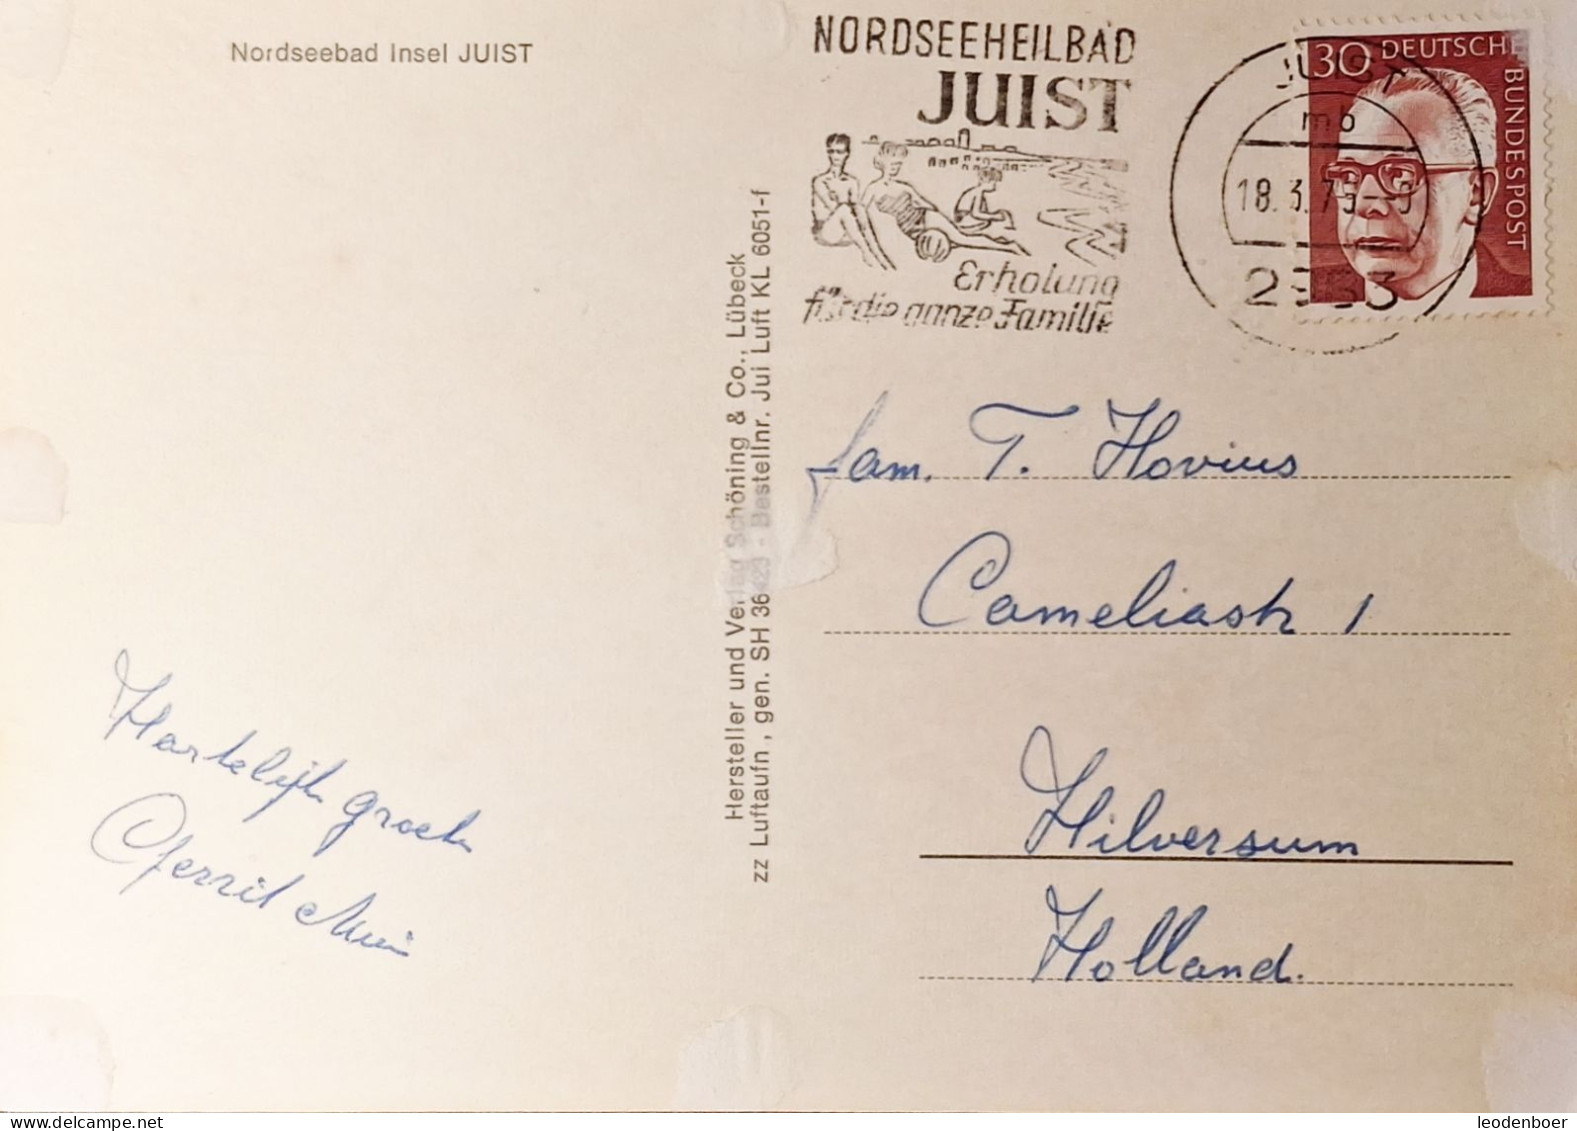 Nordseebad Insel JUIST
NORDSEEHEILBAD
JUIST
Erholung
für die ganze Familie
JUIST
mb
18.3.7
2983
30 DEUTSCHE
BUNDESPOST
Hersteller und Verlag Schöning & Co., Lübeck
zz Luftaufn., gen. SH 36 423 - Bestellnr. Jui Luft KL 6051-f
fam. T. Hovius
Cameliastr 1
Hilversum
Holland.
Hartelijk groeten
Gerrit
leodenboer